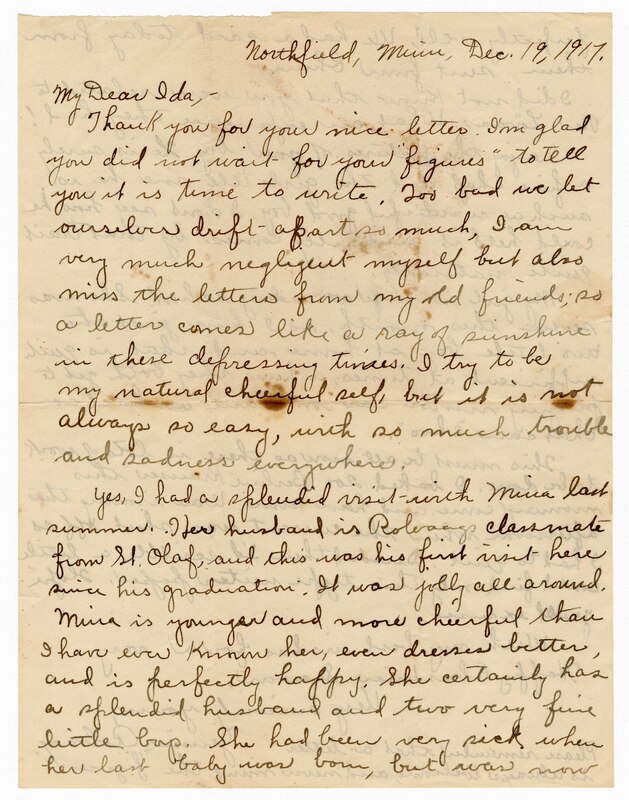 Northfield, Minn, Dec. 19, 1917.
My Dear Ida,-
Thank you for your nice letter. I'm glad
you did not wait for your "figures" to tell
you it is time to write. Too bad we let
ourselves drift apart so much, I am
very much negligent myself but also
miss the letters from my old friends; so
a letter comes like a ray of sunshine
in these depressing times. I try to be
my natural cheerful self, but it is not
always so easy, with so much trouble
and sadness everywhere.
Yes, I had a splendid visit with Mina last
summer. Her husband is Rolvaags classmate
from St. Olaf, and this was his first visit here
since his graduation. It was jolly all around.
Mina is younger and more cheerful than
I have ever known her, even dresses better,
and is perfectly happy. She certainly has
a splendid husband and two very fine
little boys. She had been very sick when
her last baby was born, but was now